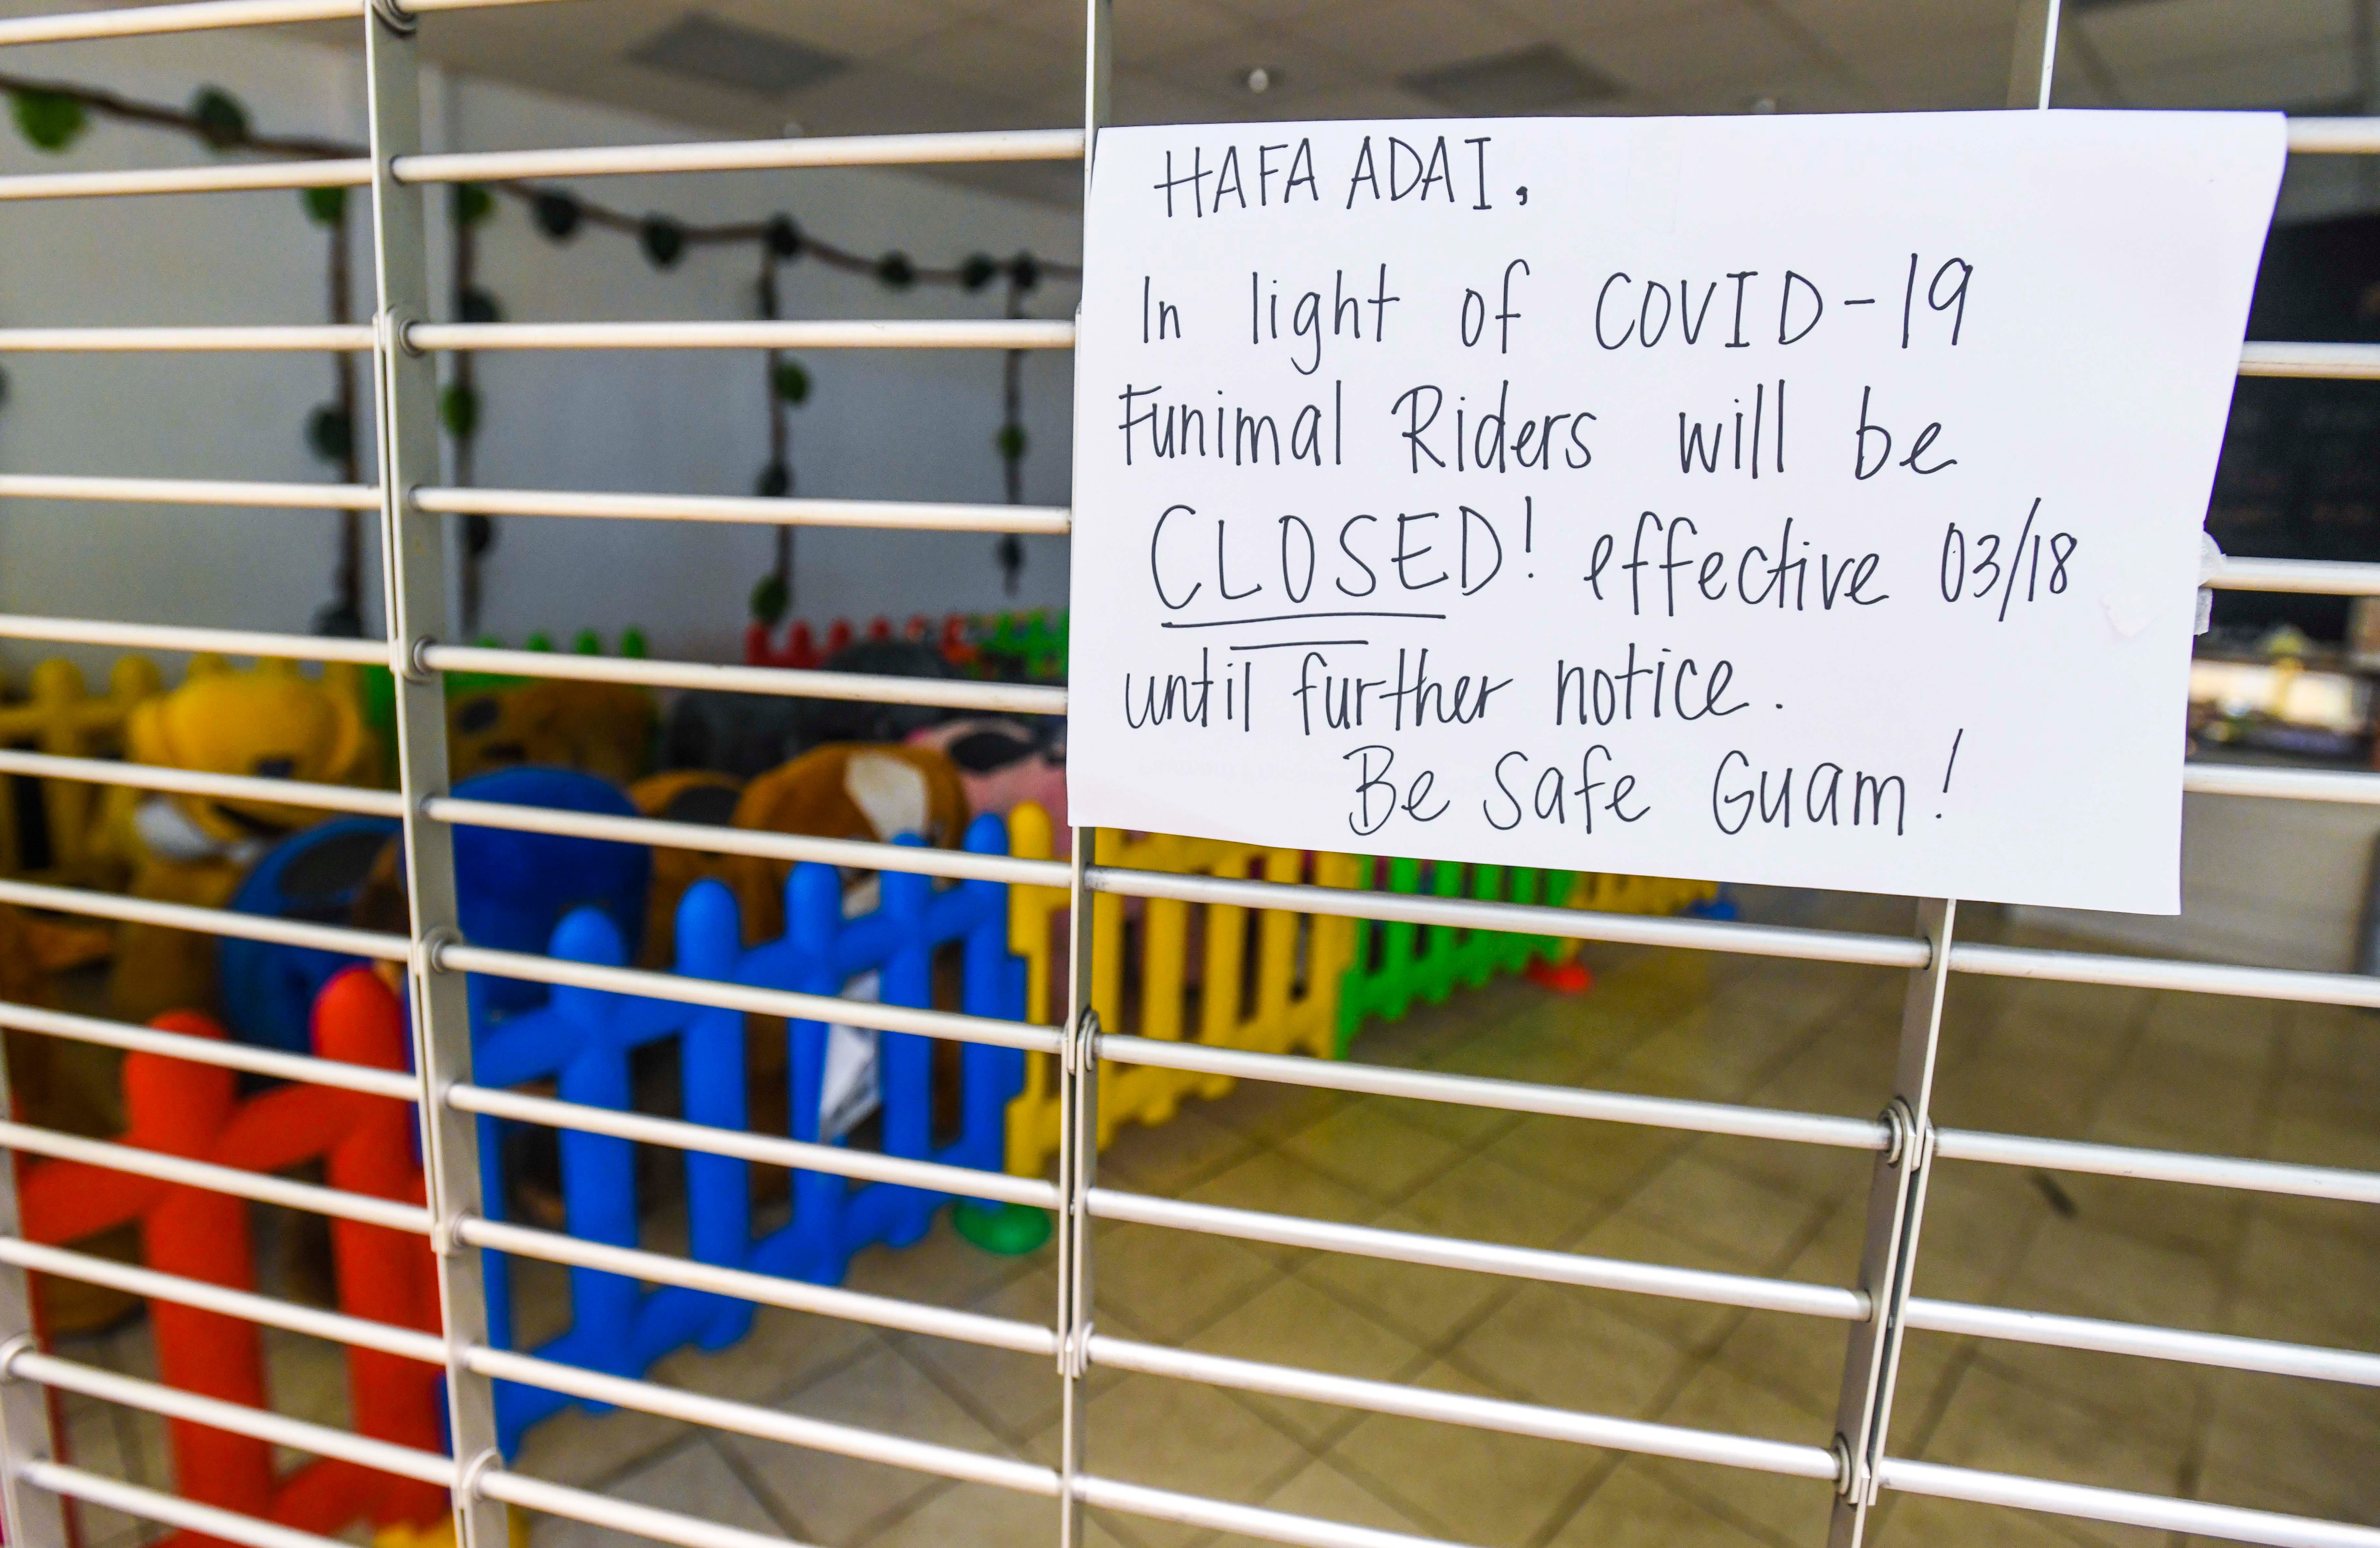 HAFA ADAI,
In light of COVID-19
Funimal Riders will be
CLOSED! effective 03/18
until further notice.
Be Safe Guam!